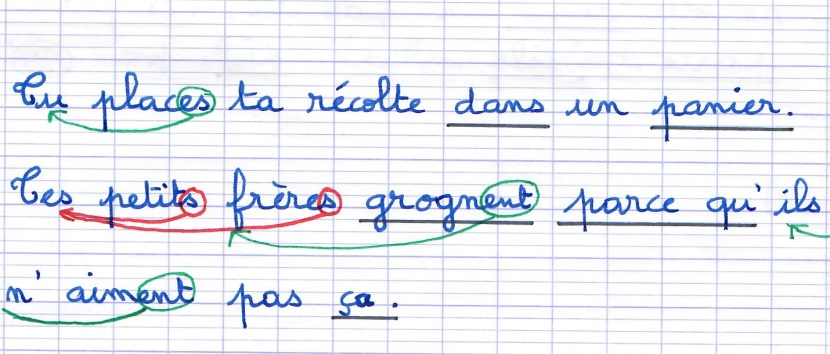 Tu places ta récolte dans un panier.
Tes petits frères grognent parce qu'ils
n'aiment pas ça.